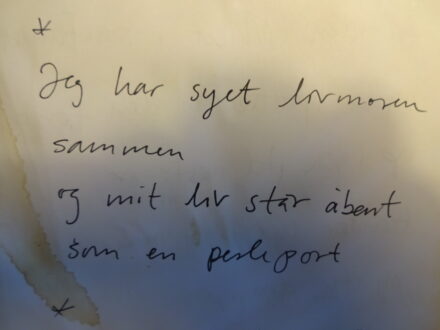 *
Jeg har syet livmoren
sammen
og mit liv står åbent
som en perleport
*